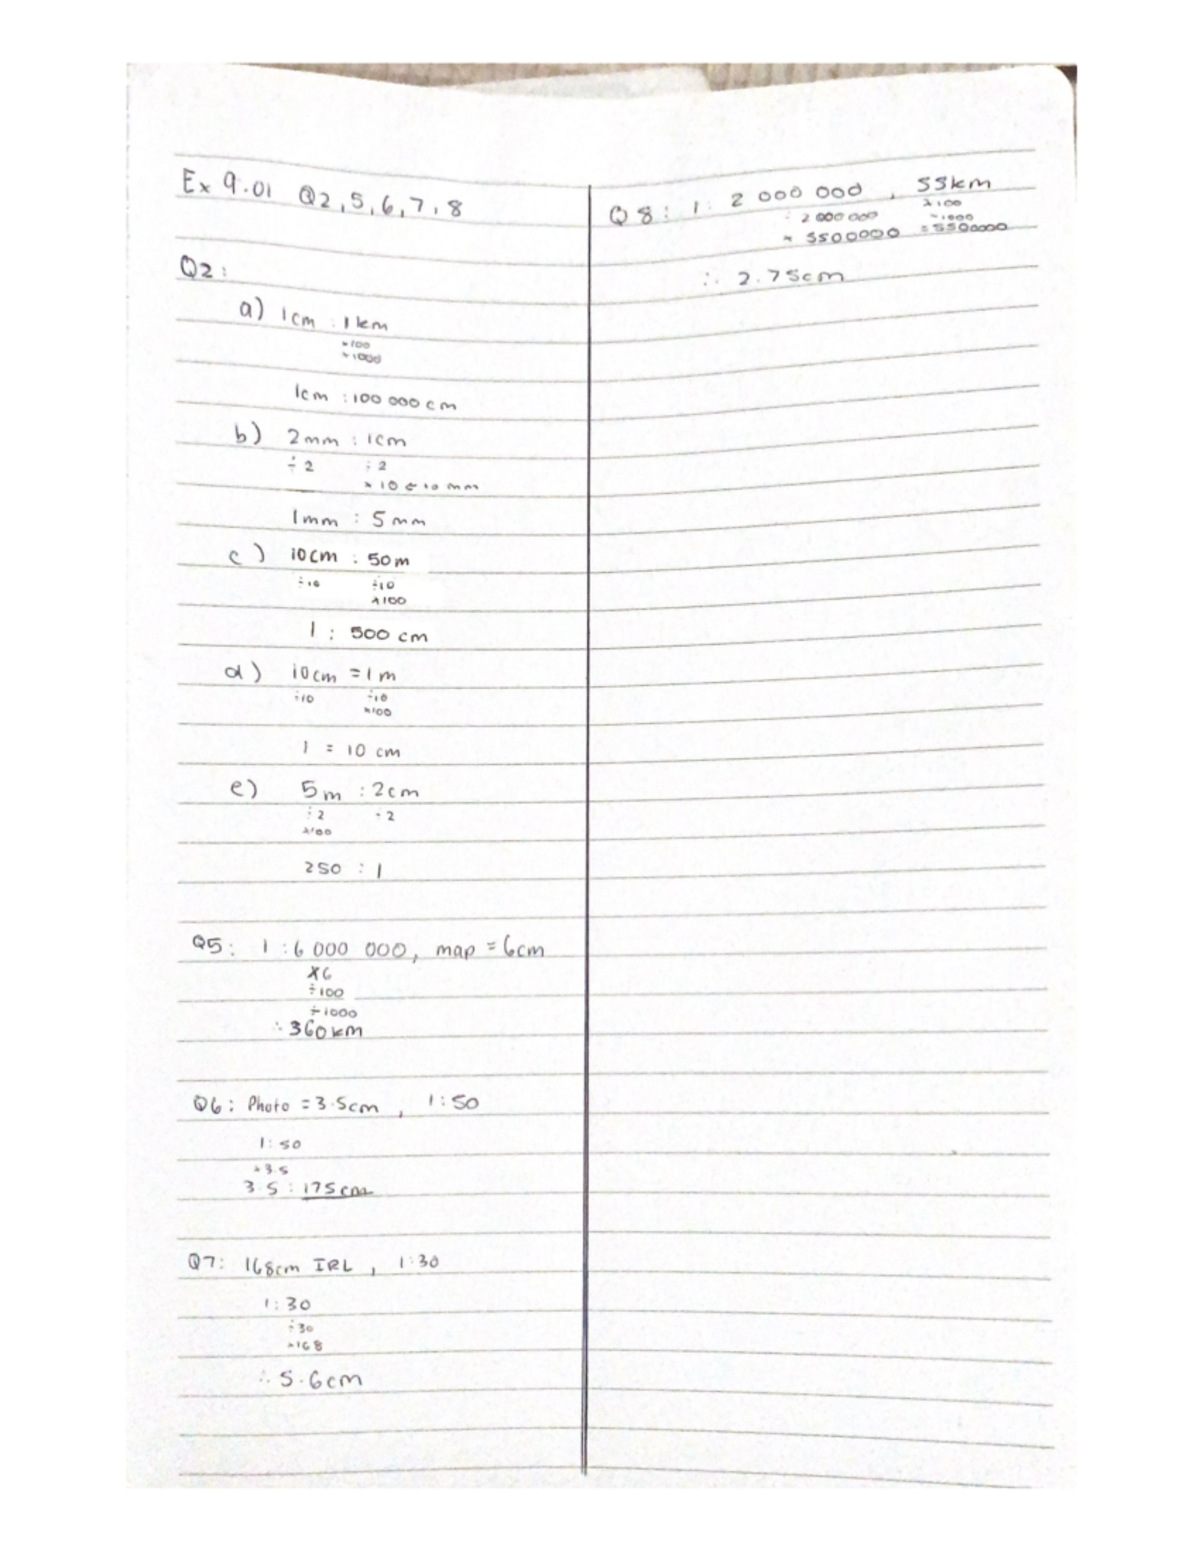 Ex 9.01 Q2,5,6,7,8
Q2:
a) 1cm : 1km
×100
×1000
1cm : 100 000 cm
b) 2mm : 1cm
÷2 ÷2
×10 ← 10 mm
1mm : 5mm
c) 10cm : 50m
÷10 ÷10
×100
1 : 500 cm
d) 10cm = 1m
÷10 ÷10
×100
1 = 10 cm
e) 5m : 2cm
÷2 ÷2
×100
250 : 1
Q5: 1 : 6 000 000, map = 6cm
×6
÷100
÷1000
∴ 360km
Q6: Photo = 3.5cm, 1:50
1:50
×3.5
3.5 : 175cm
Q7: 168cm IRL, 1:30
1:30
÷30
×168
∴ 5.6cm
Q8: 1: 2 000 000, 55km
÷ 2 000 000 ×100
×1000
× 5500000 = 5500000
∴ 2.75cm